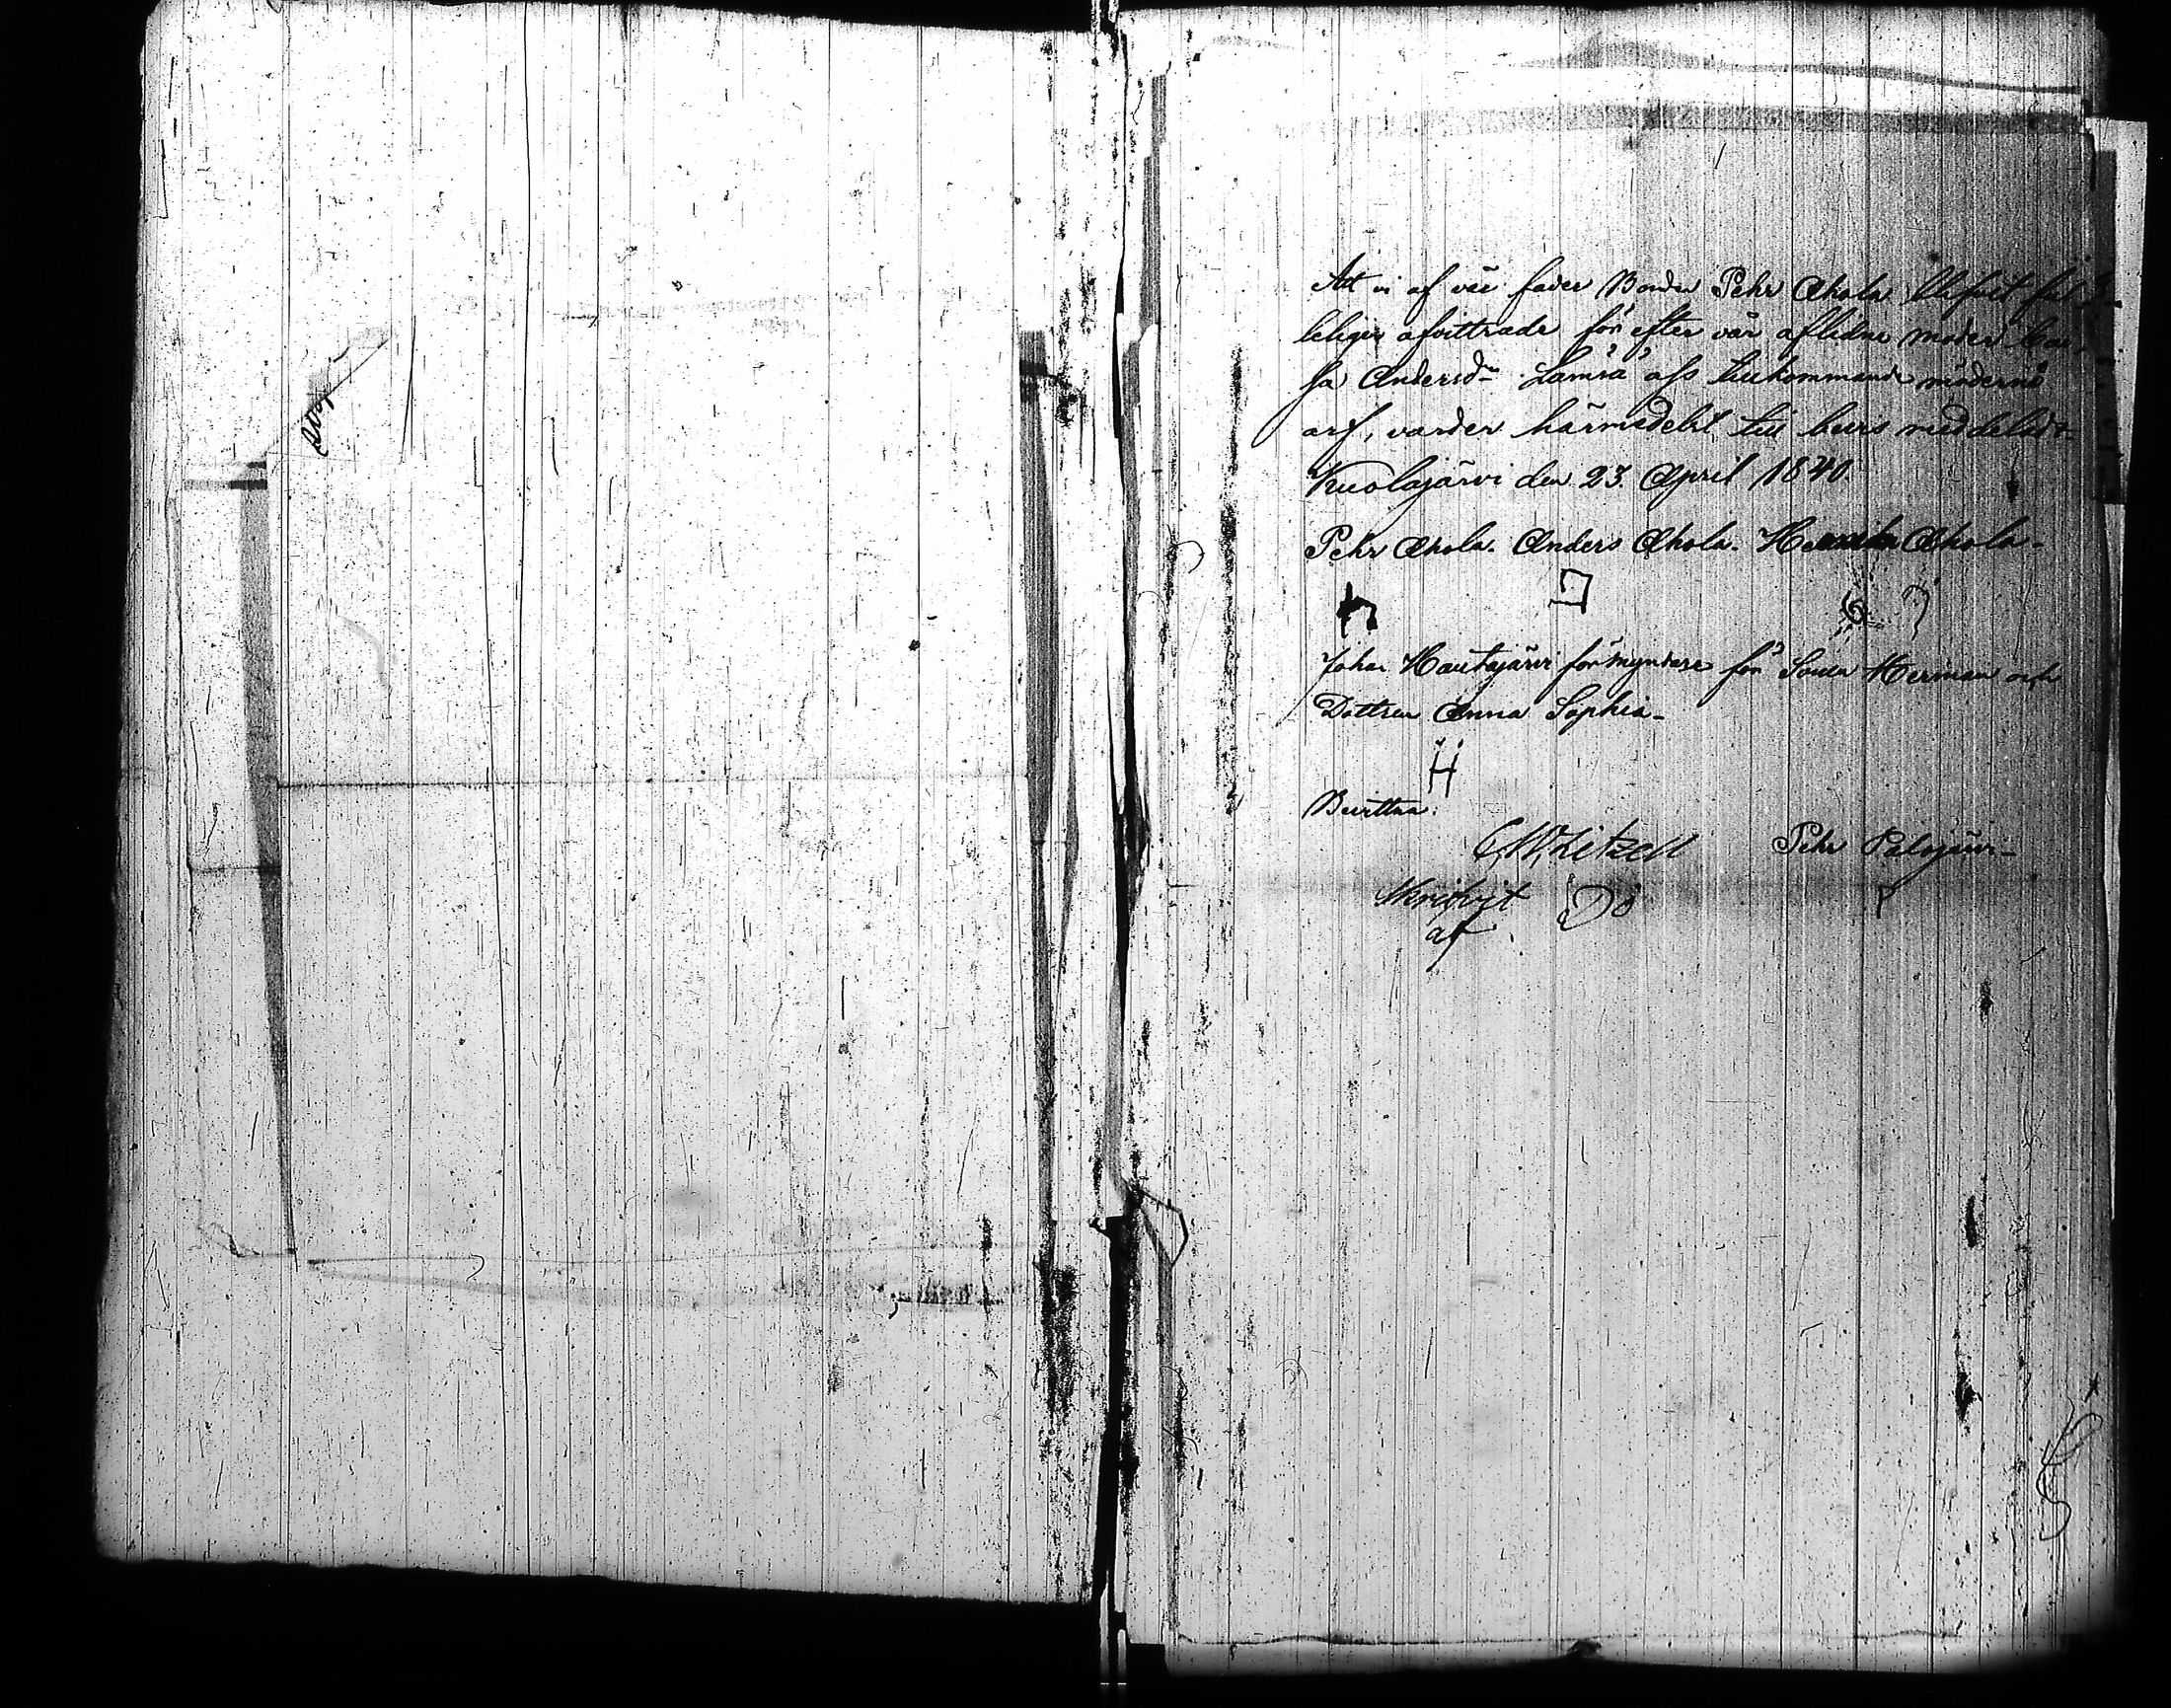 Att vi af vår fader Bonden Pehr Ahola blifvit full-
keligen afvittrade för efter vår aflidne moder Cai-
sa Andersdr Lämsä oss tillkommande möderne
arf, varder härmedelst till bevis meddeladt.
Kuolajärvi den 23. April 1840.
Pehr Ahola. Anders Ahola. Ahola.
Johan Hautajärvi förmyndare för Sonen Herman och
Dottren Anna Sophia.
H
Bevittna:
Pehr Palojärvi
Skrifvit
af